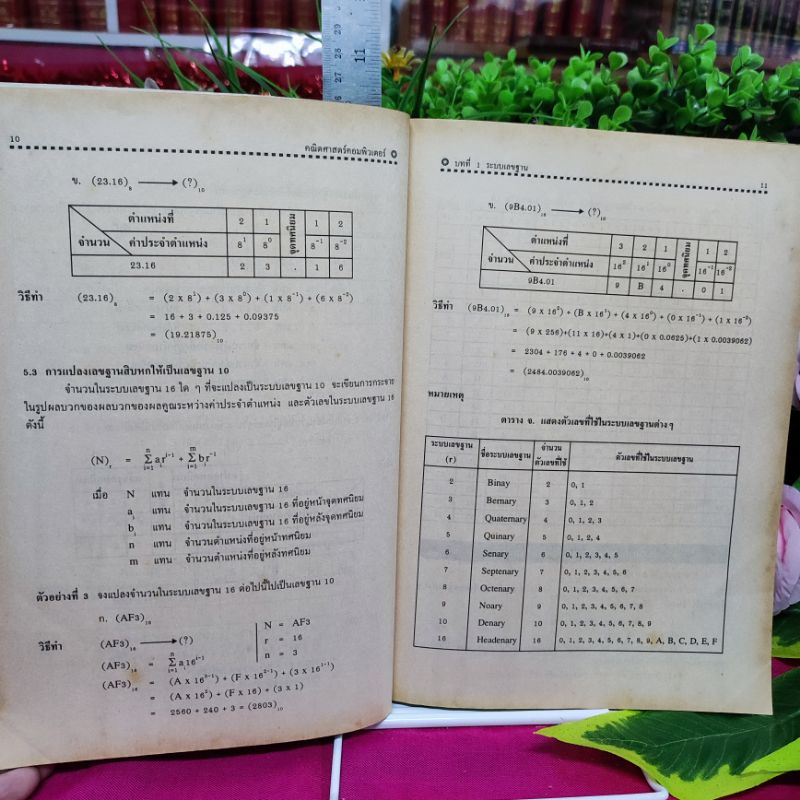 10
คณิตศาสตร์คอมพิวเตอร์
ข. (23.16)₈ ⟶ (?)₁₀
ตำแหน่งที่ 2 1 จุดทศนิยม 1 2
จำนวน ค่าประจำตำแหน่ง 8¹ 8⁰ 8⁻¹ 8⁻²
23.16 2 3 . 1 6
วิธีทำ (23.16)₈ = (2 x 8¹) + (3 x 8⁰) + (1 x 8⁻¹) + (6 x 8⁻²)
= 16 + 3 + 0.125 + 0.09375
= (19.21875)₁₀
5.3 การแปลงเลขฐานสิบหกให้เป็นเลขฐาน 10
จำนวนในระบบเลขฐาน 16 ใด ๆ ที่จะแปลงเป็นระบบเลขฐาน 10 จะเขียนการกระจาย
ในรูปผลบวกของผลบวกของผลคูณระหว่างค่าประจำตำแหน่ง และตัวเลขในระบบเลขฐาน 16
ดังนี้
(N)ᵣ = Σ aᵢrⁱ⁻¹ + Σ bᵢr⁻ⁱ
เมื่อ N แทน จำนวนในระบบเลขฐาน 16
aᵢ แทน จำนวนในระบบเลขฐาน 16 ที่อยู่หน้าจุดทศนิยม
bᵢ แทน จำนวนในระบบเลขฐาน 16 ที่อยู่หลังจุดทศนิยม
n แทน จำนวนตำแหน่งที่อยู่หน้าทศนิยม
m แทน จำนวนตำแหน่งที่อยู่หลังทศนิยม
ตัวอย่างที่ 3 จงแปลงจำนวนในระบบเลขฐาน 16 ต่อไปนี้ไปเป็นเลขฐาน 10
ก. (AF3)₁₆
วิธีทำ (AF3)₁₆ ⟶ (?) N = AF3
r = 16
(AF3)₁₆ = Σ aᵢ16ⁱ⁻¹ n = 3
(AF3)₁₆ = (A x 16³⁻¹) + (F x 16²⁻¹) + (3 x 16¹⁻¹)
= (A x 16²) + (F x 16) + (3 x 1)
= 2560 + 240 + 3 = (2803)₁₀
บทที่ 1 ระบบเลขฐาน
11
ข. (9B4.01)₁₆ ⟶ (?)₁₀
ตำแหน่งที่ 3 2 1 จุดทศนิยม 1 2
จำนวน ค่าประจำตำแหน่ง 16² 16¹ 16⁰ 16⁻¹ 16⁻²
9B4.01 9 B 4 . 0 1
วิธีทำ (9B4.01)₁₆ = (9 x 16²) + (B x 16¹) + (4 x 16⁰) + (0 x 16⁻¹) + (1 x 16⁻²)
= (9 x 256)+(11 x 16)+(4 x 1)+(0 x 0.0625)+(1 x 0.0039062)
= 2304 + 176 + 4 + 0 + 0.0039062
= (2484.0039062)₁₀
หมายเหตุ
ตาราง จ. แสดงตัวเลขที่ใช้ในระบบเลขฐานต่าง ๆ
ระบบเลขฐาน (r) ชื่อระบบเลขฐาน จำนวนตัวเลขที่ใช้ ตัวเลขที่ใช้ในระบบเลขฐาน
2 Binay 2 0, 1
3 Bernary 3 0, 1, 2
4 Quaternary 4 0, 1, 2, 3
5 Quinary 5 0, 1, 2, 4
6 Senary 6 0, 1, 2, 3, 4, 5
7 Septenary 7 0, 1, 2, 3, 4, 5, 6
8 Octenary 8 0, 1, 2, 3, 4, 5, 6, 7
9 Noary 9 0, 1, 2, 3, 4, 5, 6, 7, 8
10 Denary 10 0, 1, 2, 3, 4, 5, 6, 7, 8, 9
16 Headenary 16 0, 1, 2, 3, 4, 5, 6, 7, 8, 9, A, B, C, D, E, F